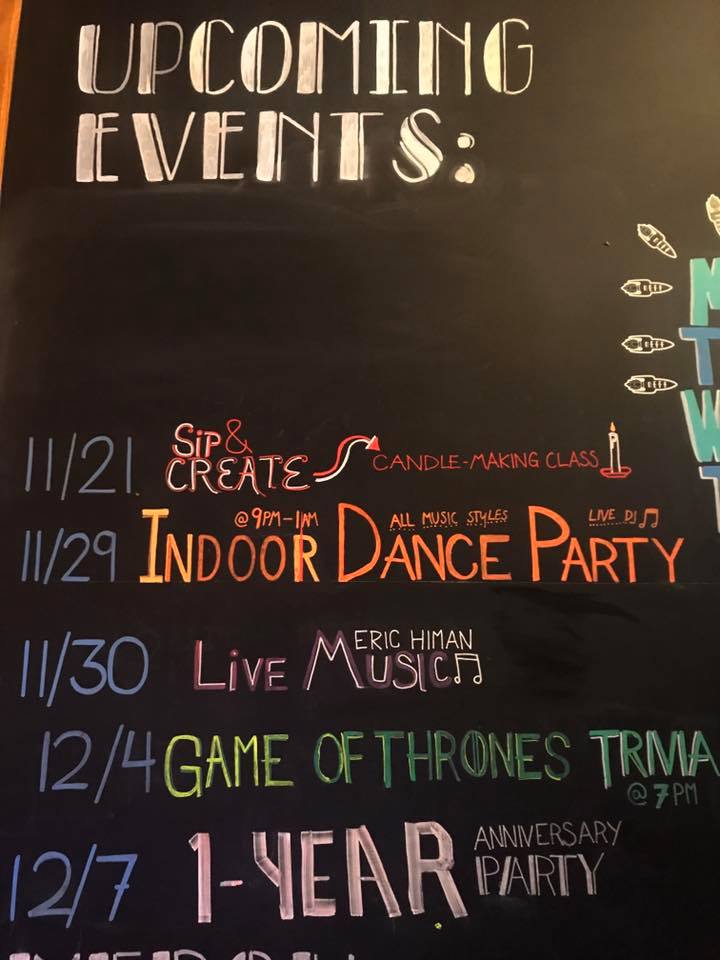 UPCOMING
EVENTS:
11/21 SiP & CREATE CANDLE-MAKING CLASS
11/29 INDOOR DANCE PARTY @ 9PM-1AM ALL MUSIC STYLES LIVE DJ
11/30 LiVE MUSIC ERIC HIMAN
12/4 GAME OF THRONES TRIVIA @ 7PM
12/7 1-YEAR ANNIVERSARY PARTY
M
T
W
T